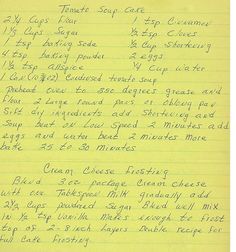 Tomato Soup Cake
2 1/4 Cups Flour 1 tsp Cinnamon
1 1/3 Cups Sugar 1/2 tsp Cloves
1 tsp baking soda 1/2 Cup Shortening
4 tsp baking powder 2 eggs
1 1/2 tsp Allspice 1/4 Cup Water
1 Can Condensed tomato soup
Preheat oven to 350 degrees grease and
Flour 2 Large round pans or Oblong pan
Sift dry ingredients add Shortening and
Soup beat on Low Speed 2 minutes add
eggs and water beat 2 minutes more
bake 25 to 30 minutes
Cream Cheese Frosting
Blend 3 oz package Cream cheese
with one Tablespoon Milk gradually add
2 1/2 Cups powdered Sugar Blend well mix
in 1/2 tsp Vanilla Makes enough to frost
top of 2-8 inch Layers Double recipe for
full Cake Frosting.